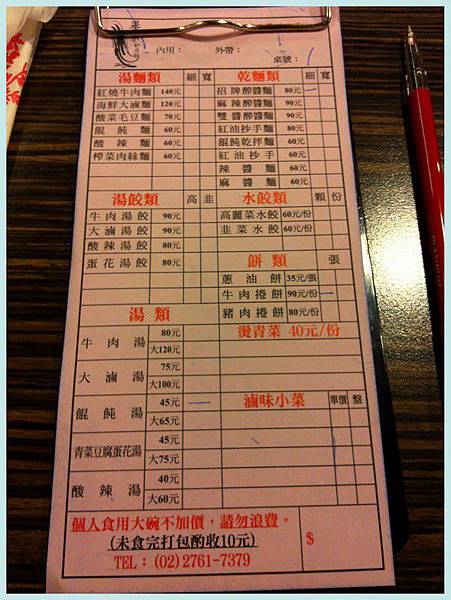 內用： 外帶： 桌號：
湯麵類 細 寬
紅燒牛肉麵 140元
海鮮大滷麵 120元
酸菜毛豆麵 70元
餛飩麵 60元
酸辣麵 60元
榨菜肉絲麵 60元
乾麵類 細 寬
招牌醡醬麵 80元
麻辣醡醬麵 90元
雙醬醡醬麵 90元
紅油抄手麵 80元
餛飩乾拌麵 80元
紅油抄手 60元
辣醬麵 60元
麻醬麵 60元
湯餃類 高 韭
牛肉湯餃 90元
大滷湯餃 90元
酸辣湯餃 80元
蛋花湯餃 80元
水餃類 顆 份
高麗菜水餃 60元/份
韭菜水餃 60元/份
餅類 張
蔥油餅 35元/張
牛肉捲餅 90元/份
豬肉捲餅 80元/份
湯類
牛肉湯 80元
大120元
大滷湯 75元
大100元
餛飩湯 45元
大65元
青菜豆腐蛋花湯 45元
大75元
酸辣湯 40元
大60元
燙青菜 40元/份
滷味小菜 單價 盤
個人食用大碗不加價，請勿浪費。
(未食完打包酌收10元)
TEL：(02)2761-7379
$